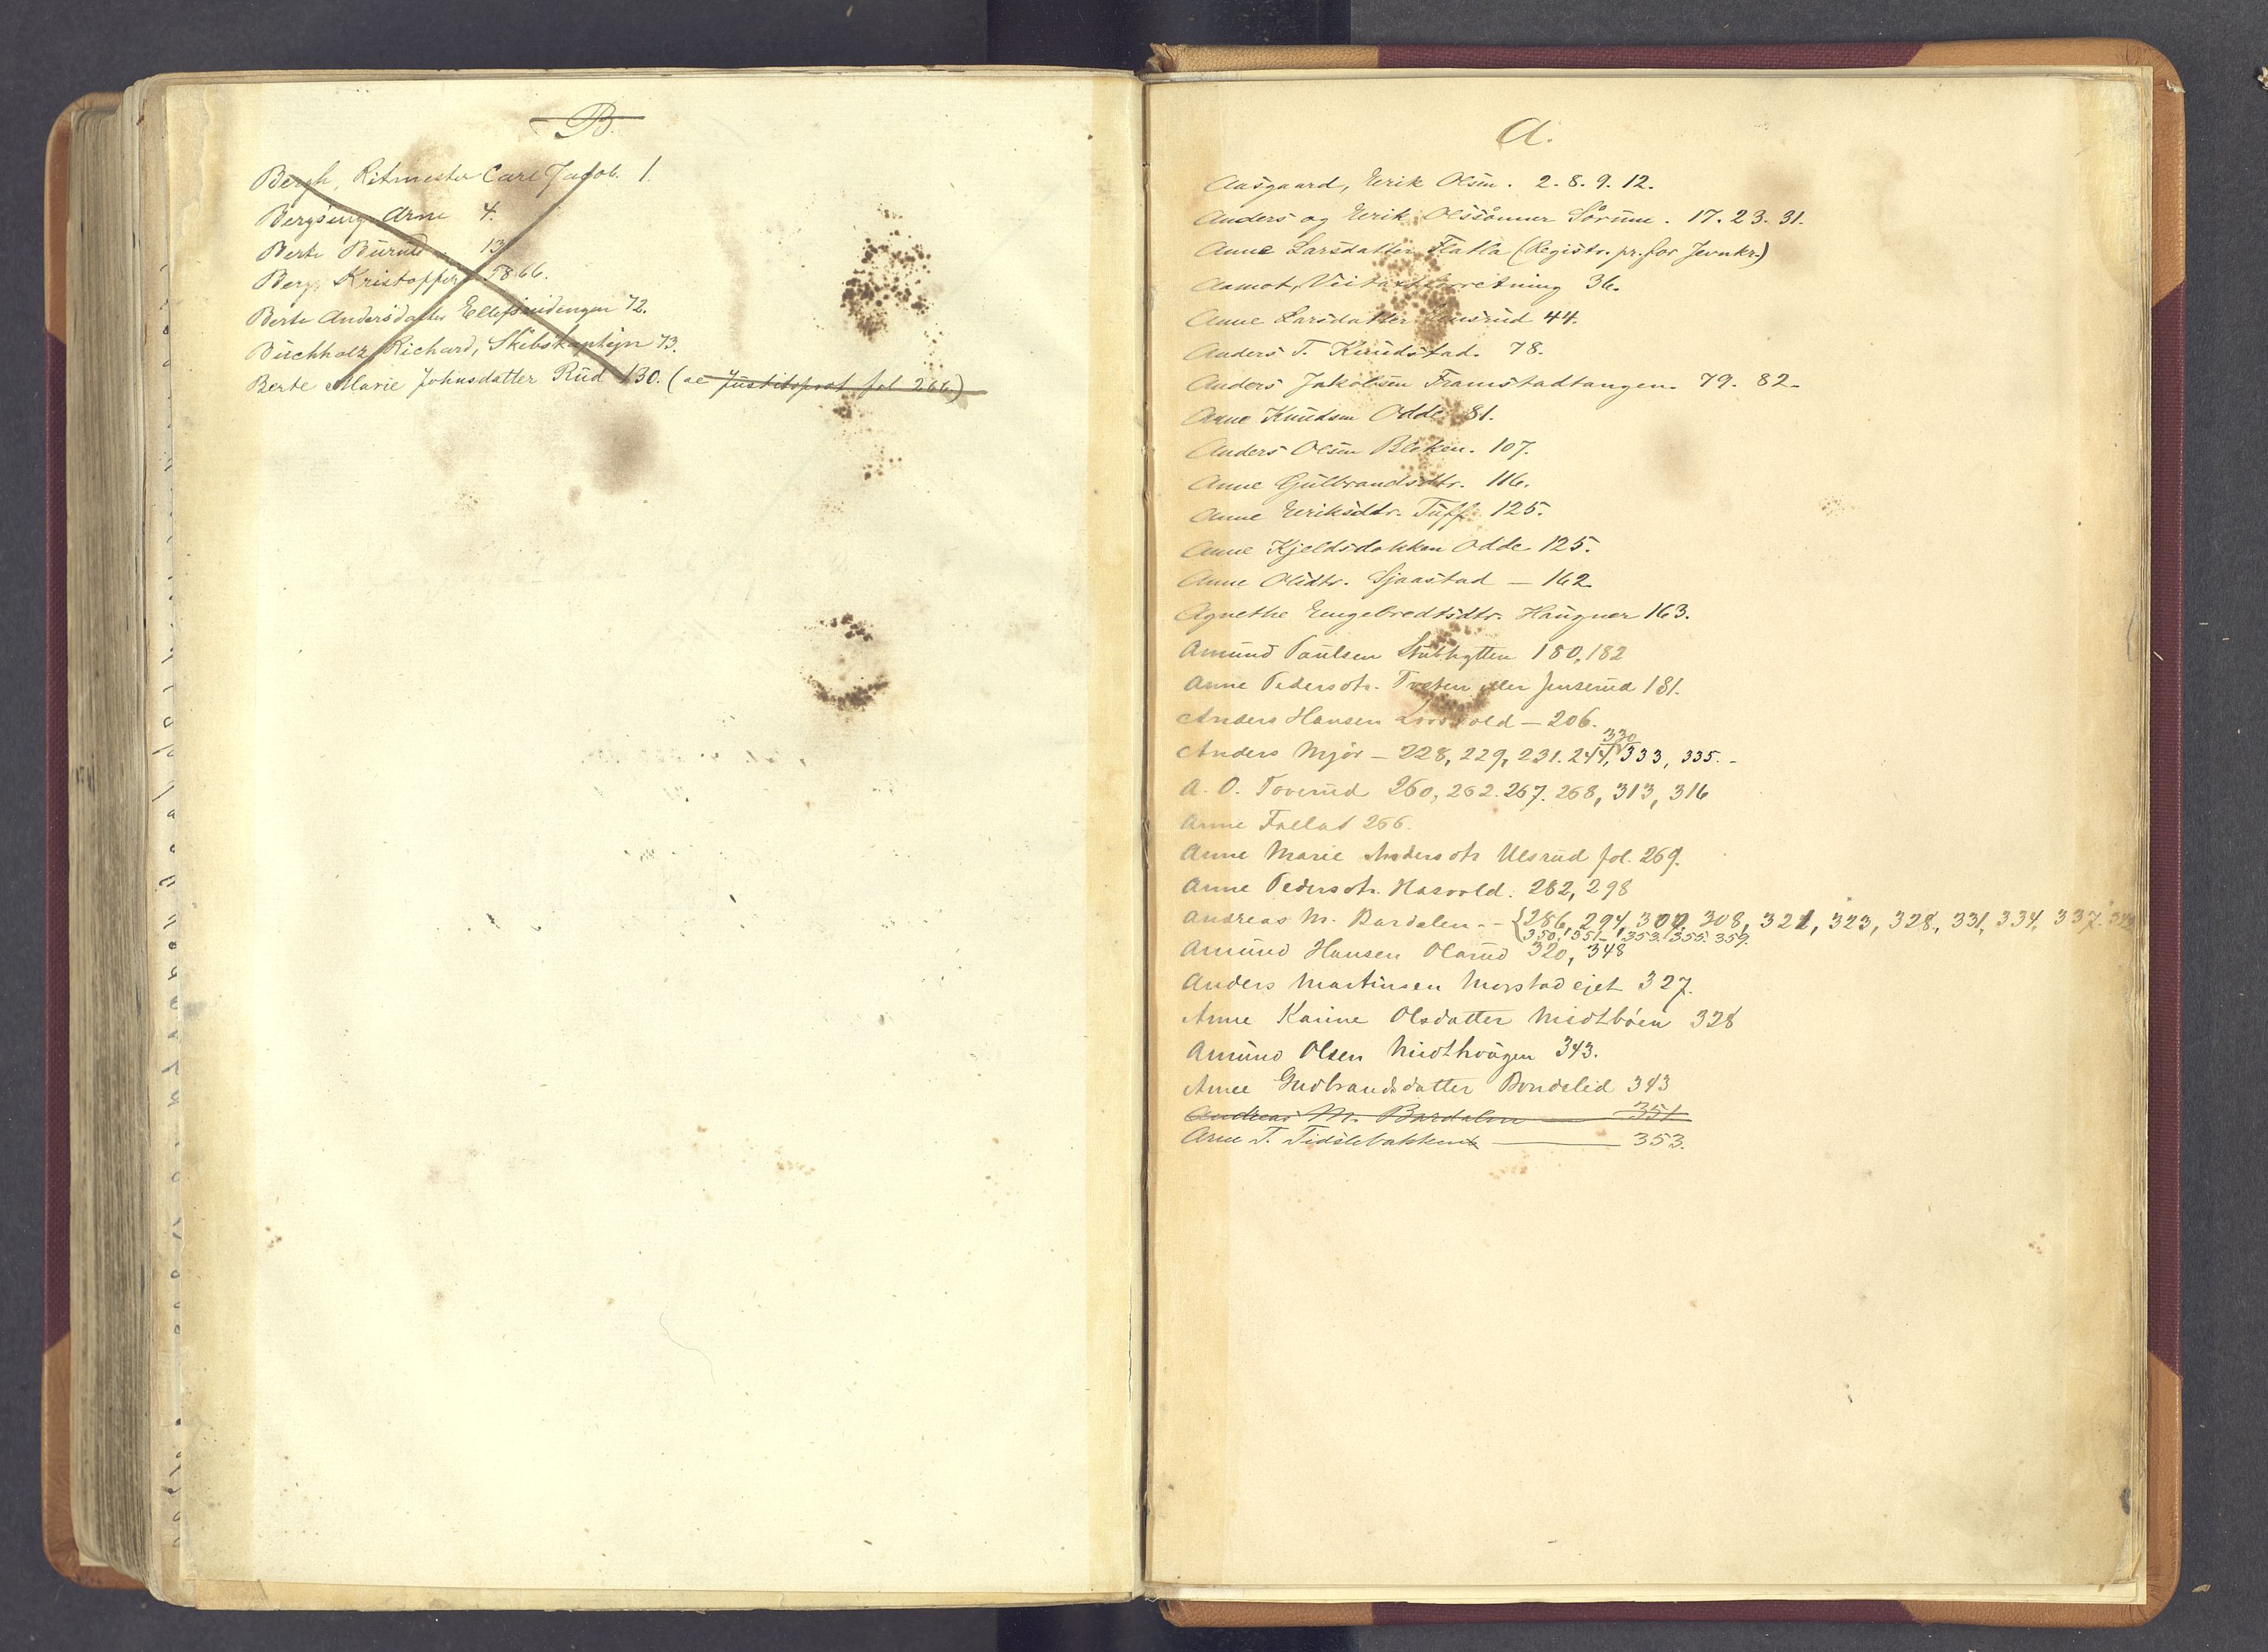 B.
Bergh, Ritmester Carl Jacob. 1.
Bergseng, Arne 4.
Berte Burud 13
Berg, Kristoffer 58 66.
Berte Andersdatter 72.
Buchholz, Richard, Skibskaptejn 73.
Berte Marie Johnsdatter Rud 130. (se Justitsprot fol 266)
A.
Aasgaard, Eerik Olsen. 2. 8. 9. 12.
Anders og Eerik Olssönner Sörum. 17. 23. 31.
Anne Larsdatter Flatla (Registr. pr. for Jevnkr.)
Aamot, 36.
Anne Larsdatter 44.
Anders T. Knudstad. 78.
Anders Jakobsen Framstadtangen. 79. 82.
Arne Knudsen Odde 81.
Anders Olsen Bleken. 107.
Anne Gulbrandsdtr. 116.
Anne Eeriksdtr. Tuff. 125.
Anne Kjeldsdokken Odde 125.
Anne Olsdtr. Sjaastad — 162
Agnethe Engebredtsdtr. Haugner 163.
Amund Paulsen Stubhytten 180, 182
Anne Pedersdtr. Tveten eller Jenserud 181.
Anders Hansen — 206.
330
Anders Mjör — 228, 229, 231. 244, 333, 335. -
A. O. Toverud 260, 262. 267. 268, 313, 316
Anne Fallat 266.
Anne Marie Andersdtr Ulsrud fol. 269.
Anne Pedersdtr. Hasvold. 282, 298
Andreas M. Bardalen - - {286, 294, 300, 308, 321, 323, 328, 331, 334, 337.
350, 351 - 353. 355. 359.
Amund Hansen Olarud 320, 348
Anders Martinsen Morstadejet 327.
Anne Karine Olsdatter Midtböen 328
Amund Olsen Midthaugen 343.
Anne Gudbrandsdatter Bondelid 343
Andreas M. Bardalen — 351
Arne T. Tidslebakken — 353.